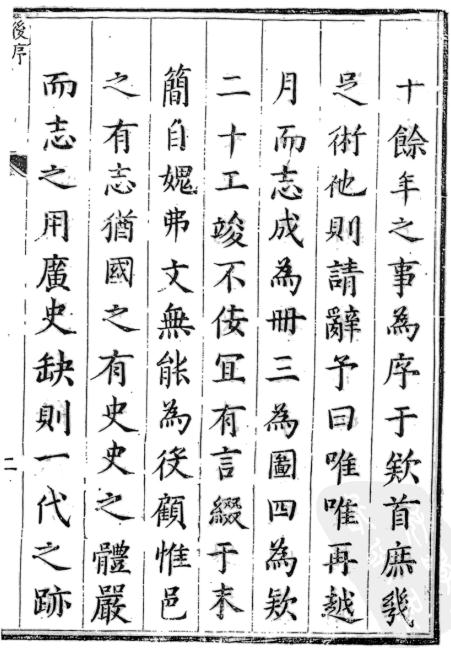 十餘年之事為序于欵首庶㡬
足術他則請辭予曰唯唯再越
月而志成為冊三為圖四為欵
二十工竣不佞宜有言綴于末
簡自媿弗文無能為役顧惟邑
之有志猶國之有史史之體嚴
而志之用廣史缺則一代之跡
後序
二